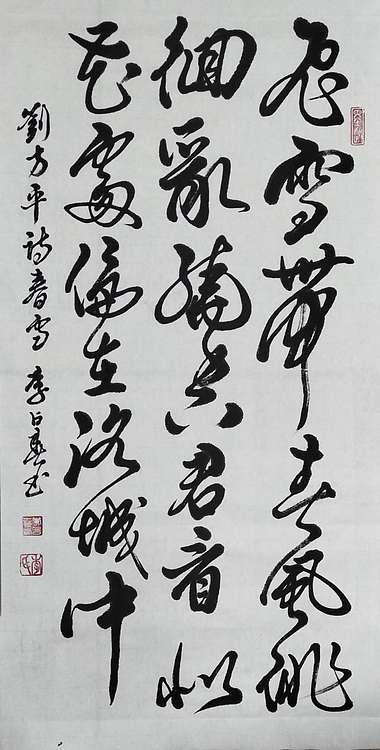 飛雪帶春風徘
徊亂繞空君看似
花處偏在洛城中
劉方平詩春雪 李